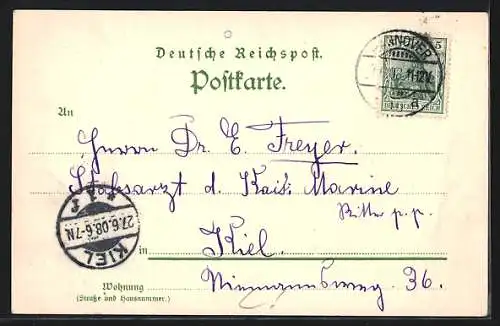 Deutsche Reichspost.
Postkarte.
HANNOVER
11-12V.
5
DEUTSCHES REICH
An
Herrn Dr. E. Freyer.
Stabsarzt d. Kais. Marine
Ritter p.p.
in Kiel.
Niemannsweg 36.
KIEL
27.6.08.6-7N
* 1 f
Wohnung
(Straße und Hausnummer.)